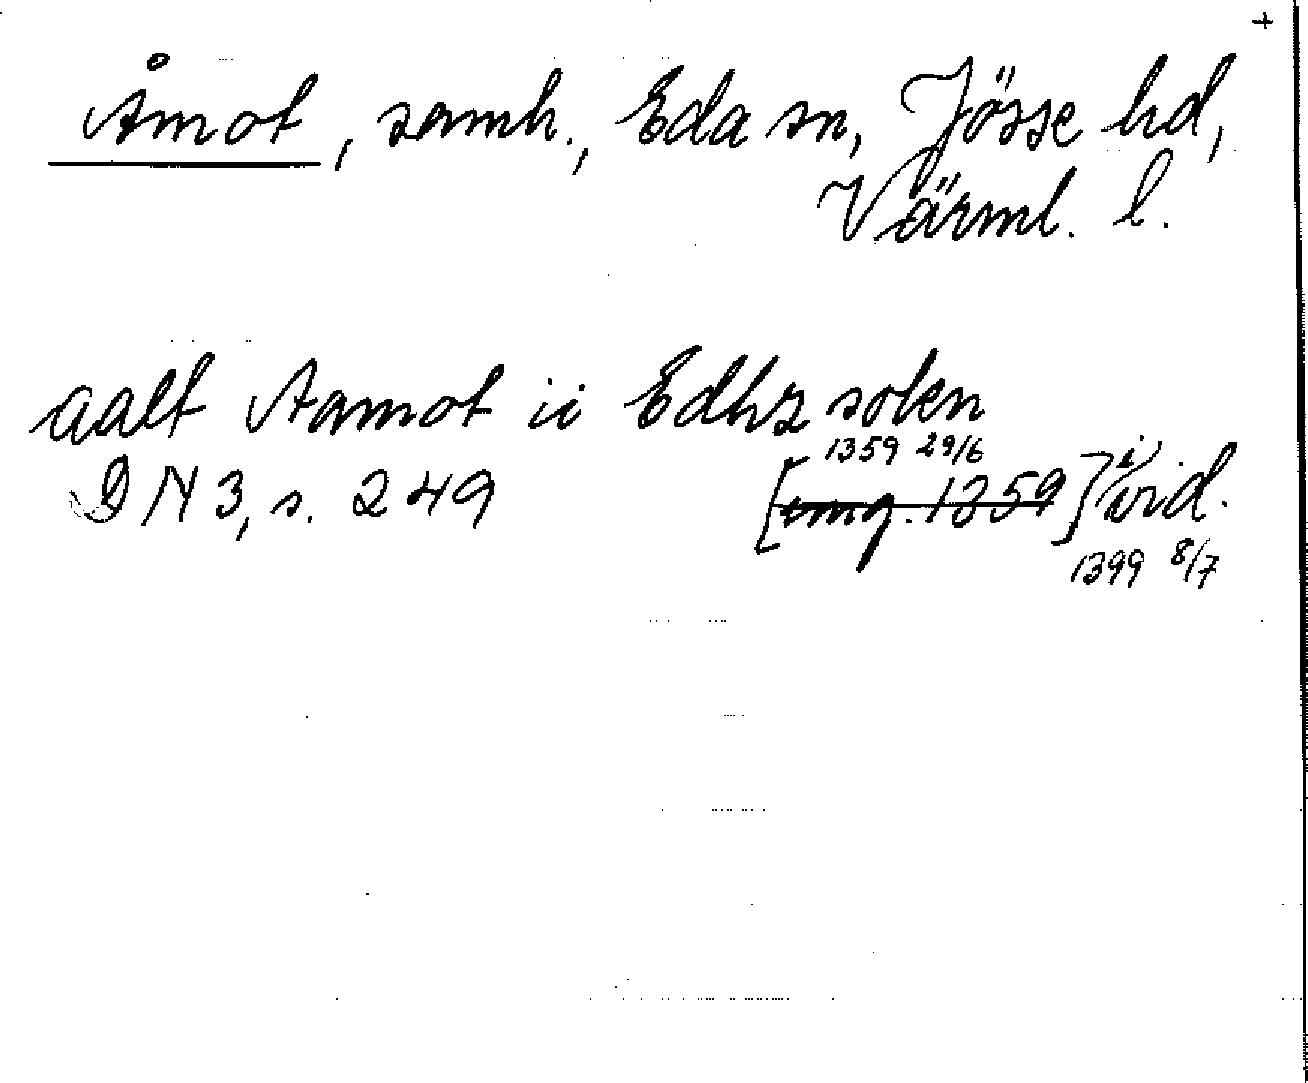 +
Åmot, samh., Eda sn, Jösse hd,
Värml. l.
aalt Aamot ii Edhz soken
1359 29/6
DN 3, s. 249 [omg. 1359] i vid.
1399 8/7